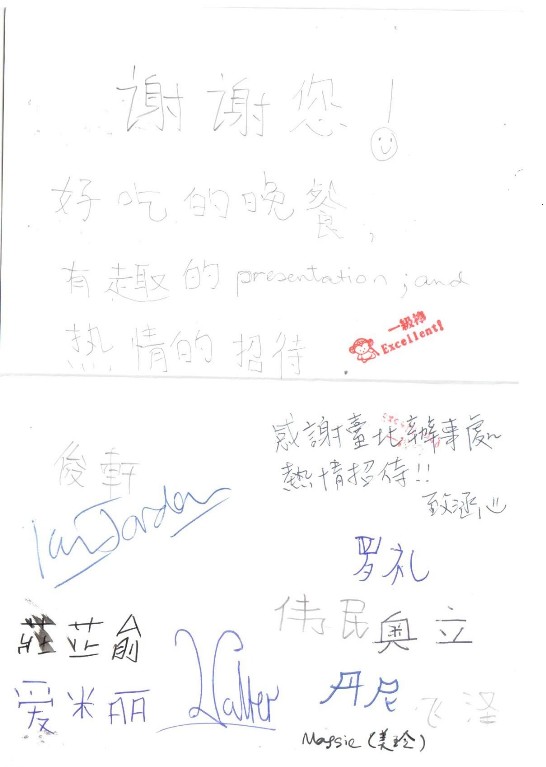 谢谢您!
好吃的晚餐,
有趣的presentation; and
热情的招待
一級棒
Excellent!
感謝臺北辦事處
熱情招待!!
致涵
俊軒
Ian Jordan
罗礼
伟民
奥立
莊芷俞
Walter
爱米丽
丹尼
飞泽
Maggie (美玲)